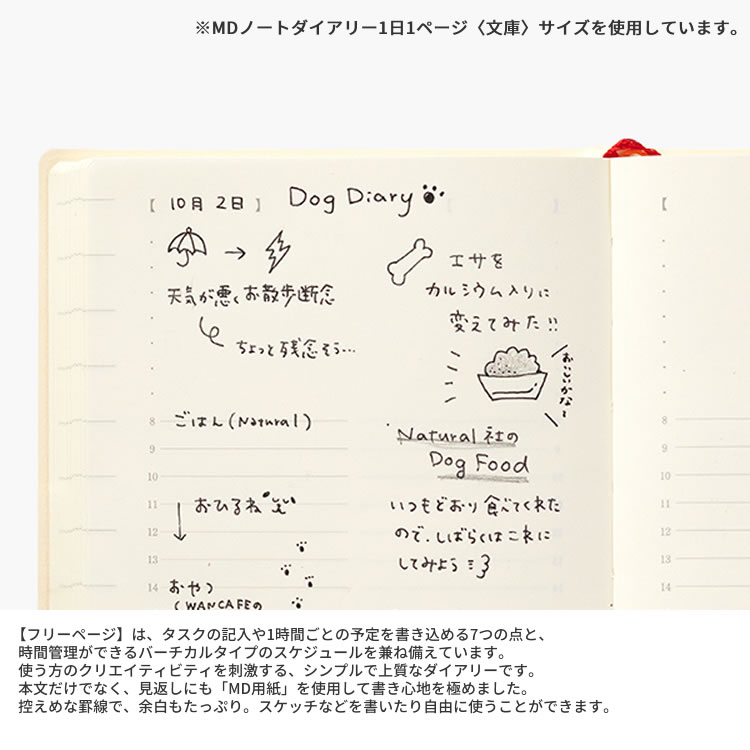 ※MDノートダイアリー1日1ページ〈文庫〉サイズを使用しています。
【 10月 2日 】 Dog Diary
天気が悪くお散歩断念
ちょっと残念そう…
8 ごはん(Natural)
9
10
11 おひるね
12
13
14 おやつ
(WANCAFEの
エサを
カルシウム入りに
変えてみた!!
おいしいかな〜
Natural 社の
Dog Food
いつもどおり食べてくれた
ので、しばらくはこれに
してみよう
【
8
9
10
11
12
13
14
【フリーページ】は、タスクの記入や1時間ごとの予定を書き込める7つの点と、
時間管理ができるバーチカルタイプのスケジュールを兼ね備えています。
使う方のクリエイティビティを刺激する、シンプルで上質なダイアリーです。
本文だけでなく、見返しにも「MD用紙」を使用して書き心地を極めました。
控えめな罫線で、余白もたっぷり。スケッチなどを書いたり自由に使うことができます。